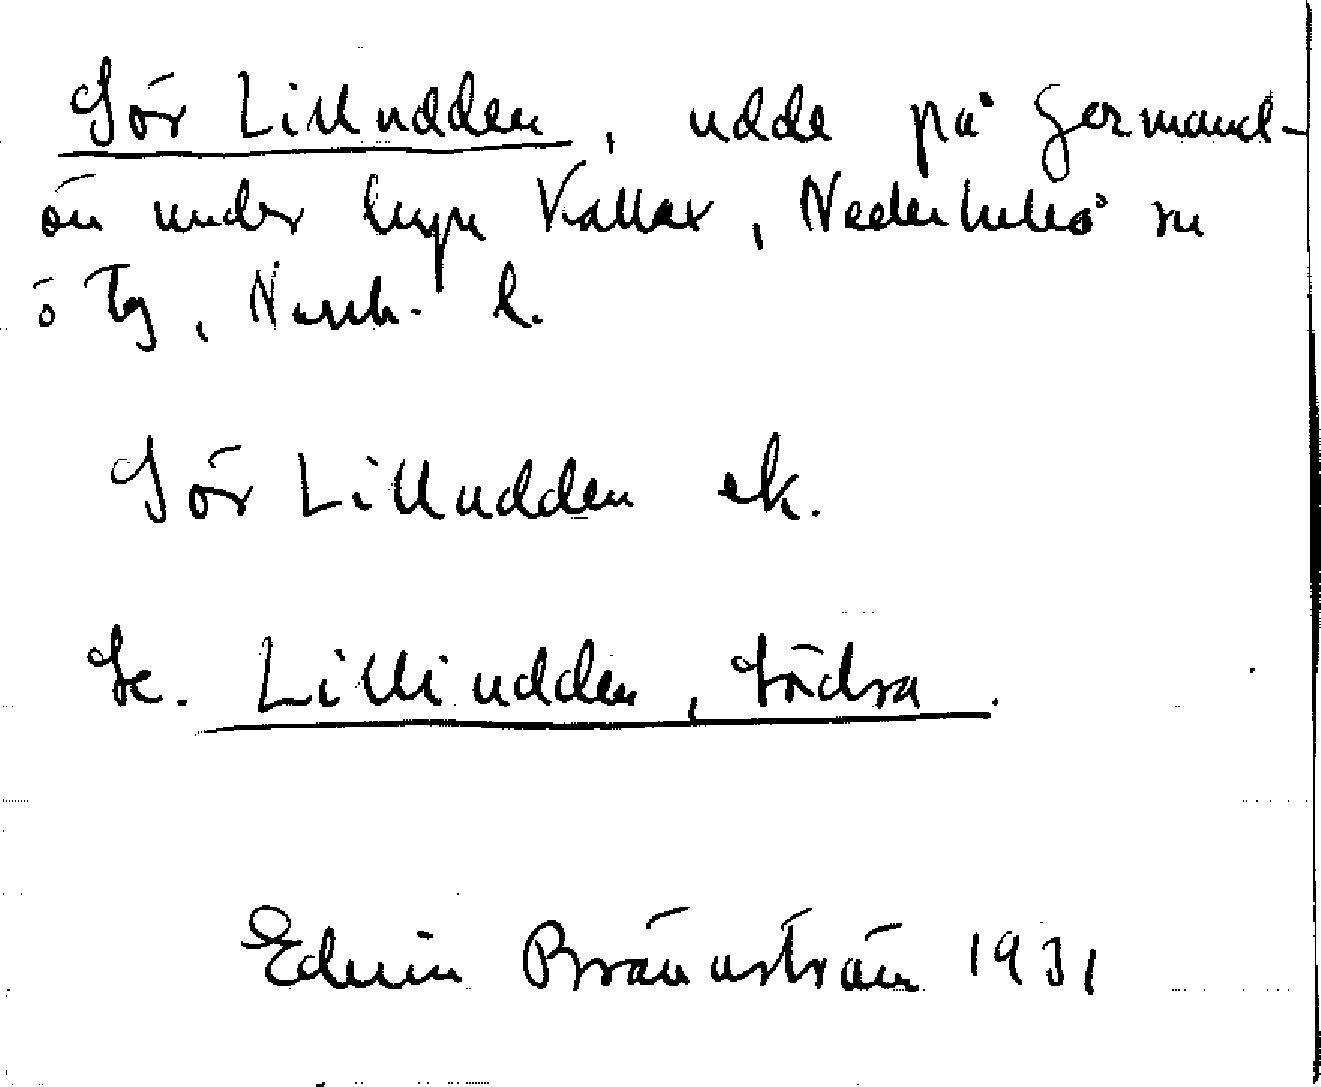 Sör Lilludden, udde på Germand-
ön under byn Vallax, Nederluleå sn
ö Tg, Norrb. l.
Sör Lilludden ek.
Se. Lilludden, Södra.
Edvin Brännström 1931